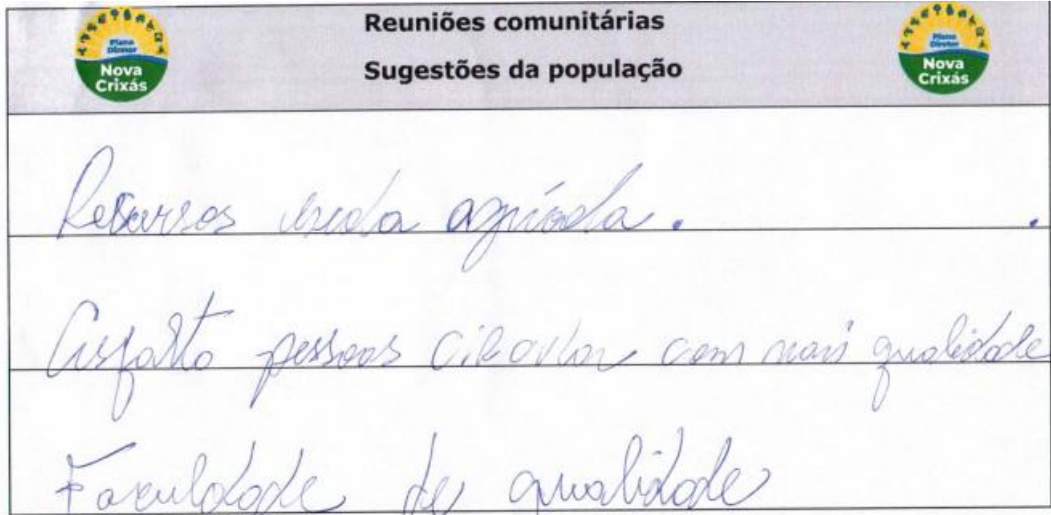 Plano
Diretor
Nova
Crixás
Reuniões comunitárias
Sugestões da população
Plano
Diretor
Nova
Crixás
Recursos agrícola.
Asfalto pessoas circular com mais qualidade
Faculdade de qualidade